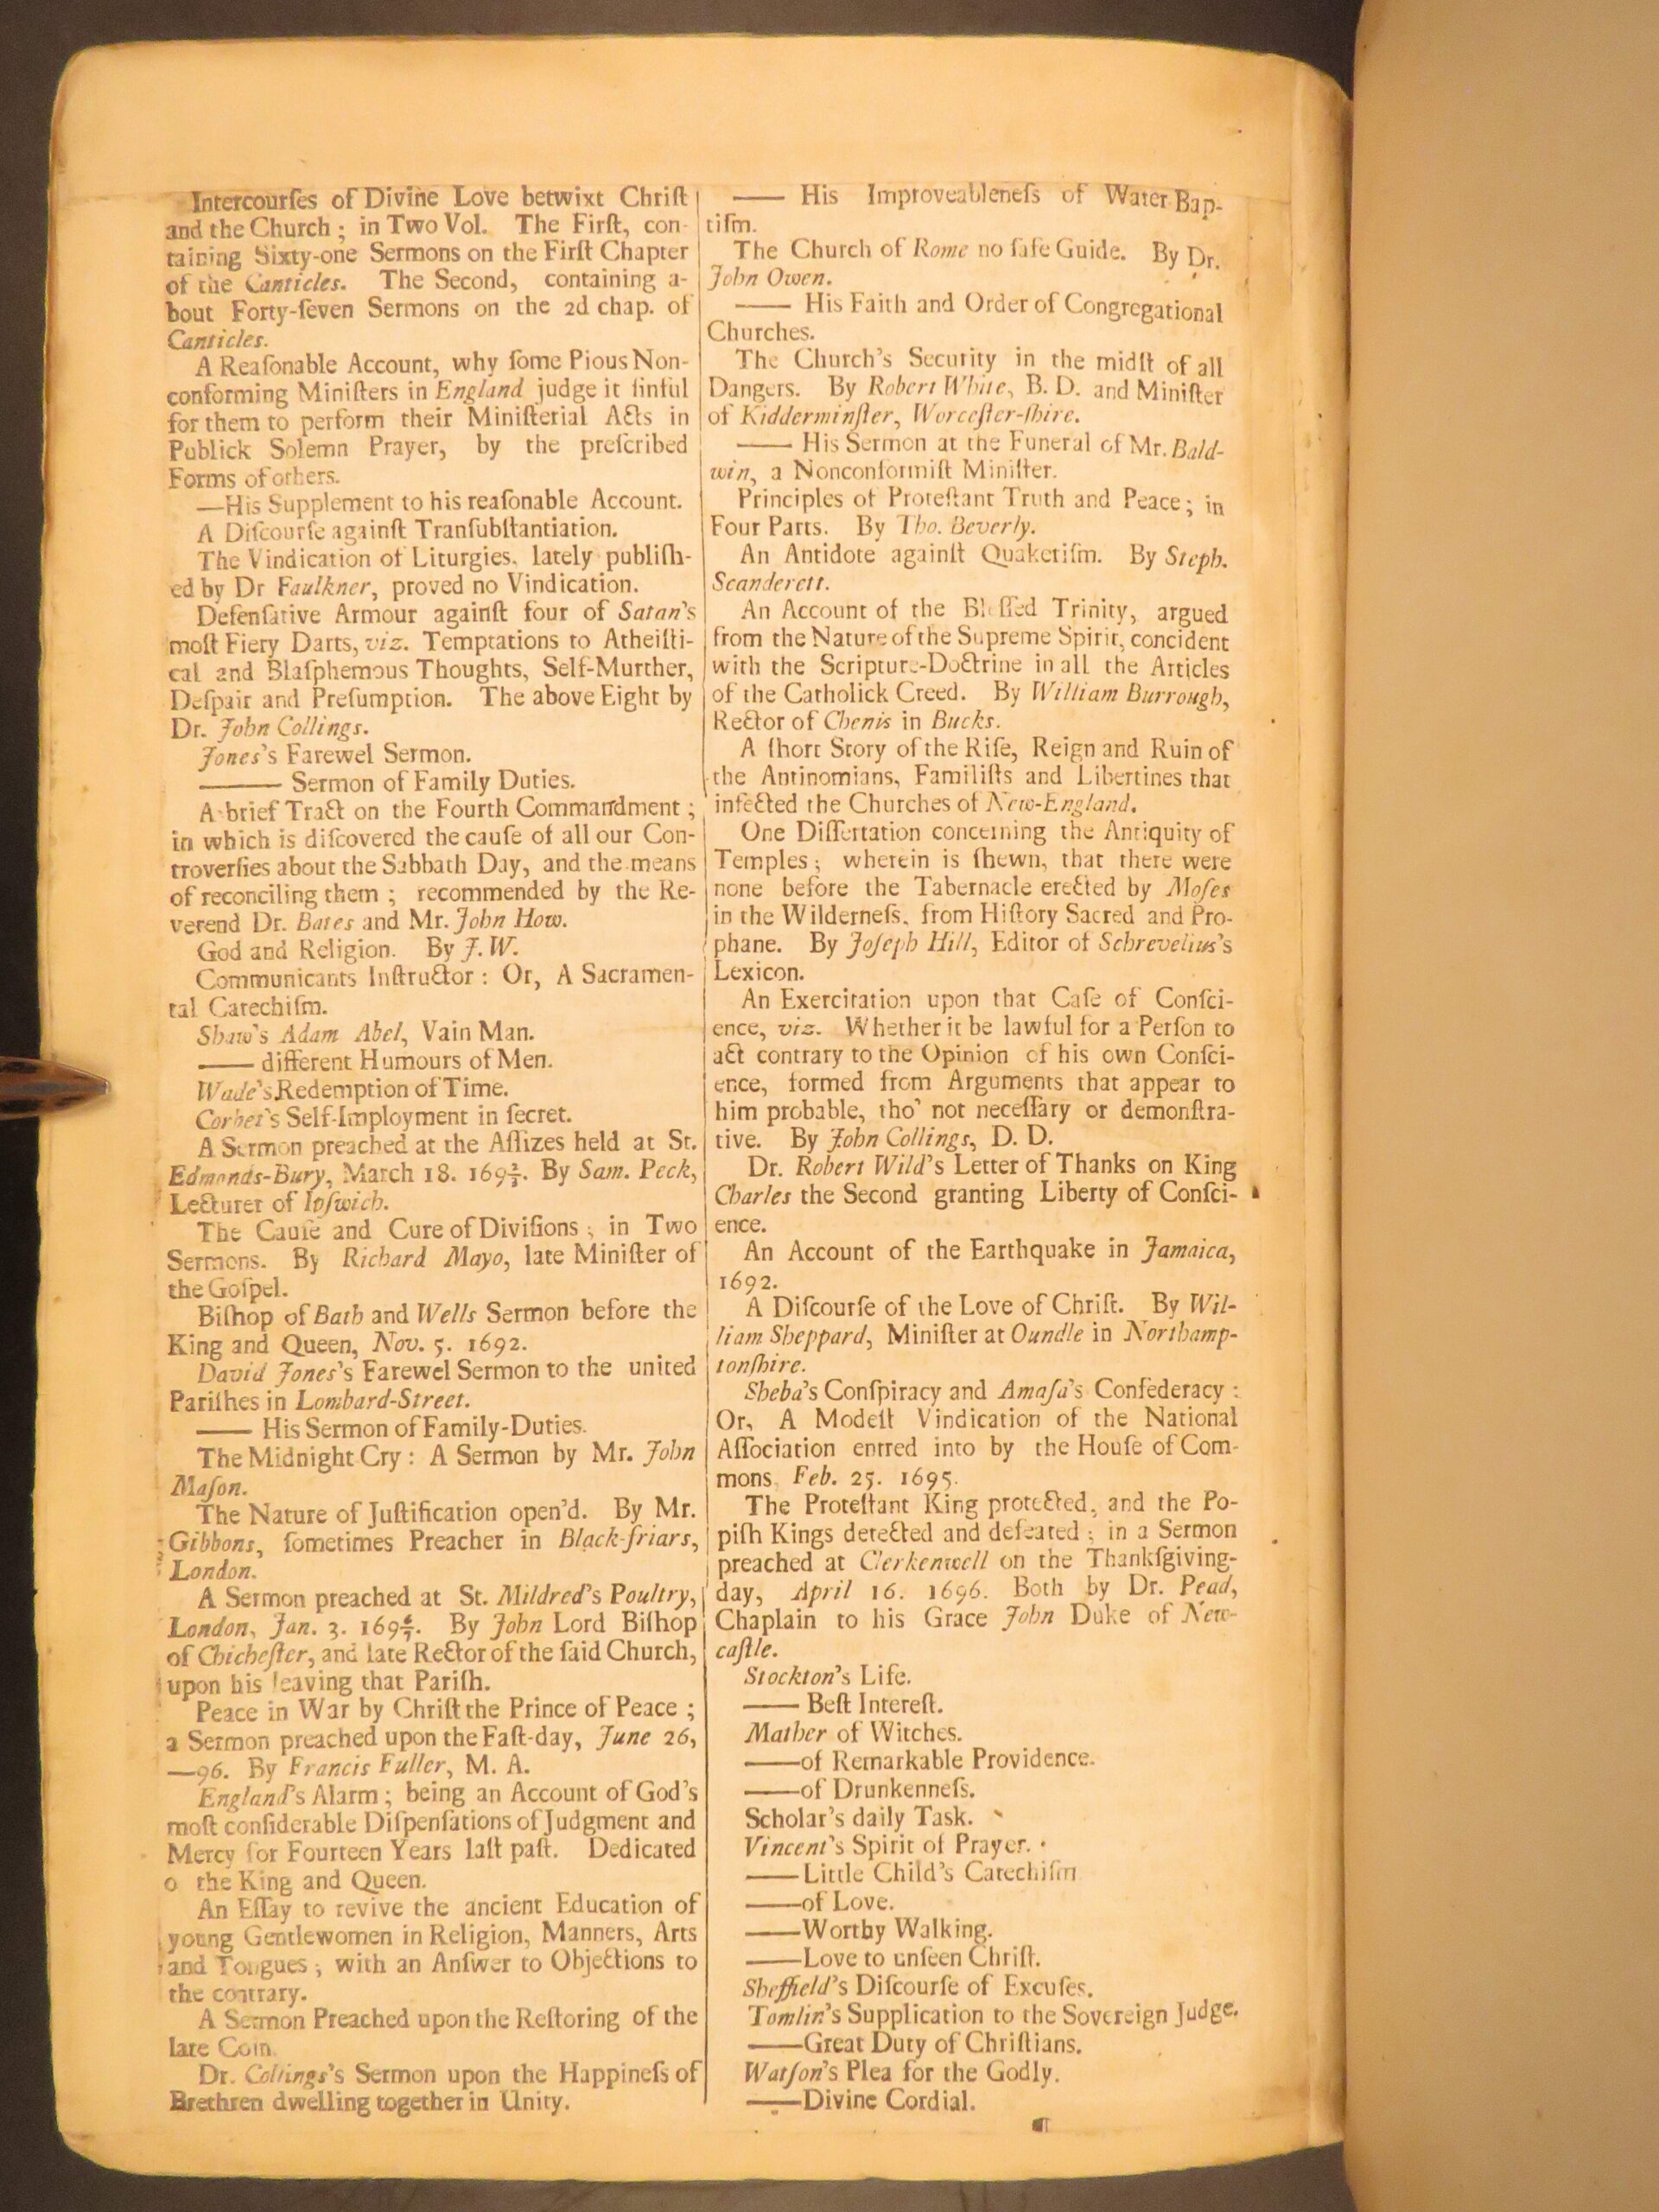 Intercourſes of Divine Love betwixt Chriſt
and the Church ; in Two Vol. The Firſt, con-
taining Sixty-one Sermons on the Firſt Chapter
of the Canticles. The Second, containing a-
bout Forty-ſeven Sermons on the 2d chap. of
Canticles.
A Reaſonable Account, why ſome Pious Non-
conforming Miniſters in England judge it ſinful
for them to perform their Miniſterial Acts in
Publick Solemn Prayer, by the preſcribed
Forms of others.
—His Supplement to his reaſonable Account.
A Diſcourſe againſt Tranſubſtantiation.
The Vindication of Liturgies, lately publiſh-
ed by Dr Faulkner, proved no Vindication.
Defenſative Armour againſt four of Satan's
moſt Fiery Darts, viz. Temptations to Atheiſti-
cal and Blaſphemous Thoughts, Self-Murther,
Deſpair and Preſumption. The above Eight by
Dr. John Collings.
Jones's Farewel Sermon.
—— Sermon of Family Duties.
A brief Tract on the Fourth Commandment ;
in which is diſcovered the cauſe of all our Con-
troverſies about the Sabbath Day, and the means
of reconciling them ; recommended by the Re-
verend Dr. Bates and Mr. John How.
God and Religion. By J. W.
Communicants Inſtructor : Or, A Sacramen-
tal Catechiſm.
Shaw's Adam Abel, Vain Man.
—— different Humours of Men.
Wade's Redemption of Time.
Corbet's Self-Imployment in ſecret.
A Sermon preached at the Aſſizes held at St.
Edmonds-Bury, March 18. 169⅔. By Sam. Peck,
Lecturer of Ipſwich.
The Cauſe and Cure of Diviſions ; in Two
Sermons. By Richard Mayo, late Miniſter of
the Goſpel.
Biſhop of Bath and Wells Sermon before the
King and Queen, Nov. 5. 1692.
David Jones's Farewel Sermon to the united
Pariſhes in Lombard-Street.
—— His Sermon of Family-Duties.
The Midnight Cry : A Sermon by Mr. John
Maſon.
The Nature of Juſtification open'd. By Mr.
Gibbons, ſometimes Preacher in Black-friars,
London.
A Sermon preached at St. Mildred's Poultry,
London, Jan. 3. 169 6/7. By John Lord Biſhop
of Chicheſter, and late Rector of the ſaid Church,
upon his leaving that Pariſh.
Peace in War by Chriſt the Prince of Peace ;
a Sermon preached upon the Faſt-day, June 26,
—96. By Francis Fuller, M. A.
England's Alarm ; being an Account of God's
moſt conſiderable Diſpenſations of Judgment and
Mercy for Fourteen Years laſt paſt. Dedicated
o the King and Queen.
An Eſſay to revive the ancient Education of
young Gentlewomen in Religion, Manners, Arts
and Tongues ; with an Anſwer to Objections to
the contrary.
A Sermon Preached upon the Reſtoring of the
late Coin.
Dr. Collings's Sermon upon the Happineſs of
Brethren dwelling together in Unity.
—— His Improveableneſs of Water Bap-
tiſm.
The Church of Rome no ſafe Guide. By Dr.
John Owen.
—— His Faith and Order of Congregational
Churches.
The Church's Security in the midſt of all
Dangers. By Robert White, B. D. and Miniſter
of Kidderminſter, Worceſter-ſhire.
—— His Sermon at the Funeral of Mr. Bald-
win, a Nonconformiſt Miniſter.
Principles of Proteſtant Truth and Peace ; in
Four Parts. By Tho. Beverly.
An Antidote againſt Quakeriſm. By Steph.
Scanderett.
An Account of the Bleſſed Trinity, argued
from the Nature of the Supreme Spirit, concident
with the Scripture-Doctrine in all the Articles
of the Catholick Creed. By William Burrough,
Rector of Chenis in Bucks.
A ſhort Story of the Riſe, Reign and Ruin of
the Antinomians, Familiſts and Libertines that
infected the Churches of New-England.
One Diſſertation concerning the Antiquity of
Temples ; wherein is ſhewn, that there were
none before the Tabernacle erected by Moſes
in the Wilderneſs, from Hiſtory Sacred and Pro-
phane. By Joſeph Hill, Editor of Schrevelius's
Lexicon.
An Exercitation upon that Caſe of Conſci-
ence, viz. Whether it be lawful for a Perſon to
act contrary to the Opinion of his own Conſci-
ence, formed from Arguments that appear to
him probable, tho' not neceſſary or demonſtra-
tive. By John Collings, D. D.
Dr. Robert Wild's Letter of Thanks on King
Charles the Second granting Liberty of Conſci-
ence.
An Account of the Earthquake in Jamaica,
1692.
A Diſcourſe of the Love of Chriſt. By Wil-
liam Sheppard, Miniſter at Oundle in Northamp-
tonſhire.
Sheba's Conſpiracy and Amaſa's Confederacy :
Or, A Modeſt Vindication of the National
Aſſociation entred into by the Houſe of Com-
mons, Feb. 25. 1695.
The Proteſtant King protected, and the Po-
piſh Kings detected and defeated ; in a Sermon
preached at Clerkenwell on the Thankſgiving-
day, April 16. 1696. Both by Dr. Pead,
Chaplain to his Grace John Duke of New-
caſtle.
Stockton's Life.
—— Beſt Intereſt.
Mather of Witches.
——of Remarkable Providence.
——of Drunkenneſs.
Scholar's daily Task.
Vincent's Spirit of Prayer.
——Little Child's Catechiſm
——of Love.
——Worthy Walking.
——Love to unſeen Chriſt.
Sheffield's Diſcourſe of Excuſes.
Tomlin's Supplication to the Sovereign Judge.
——Great Duty of Chriſtians.
Watſon's Plea for the Godly.
——Divine Cordial.
¶